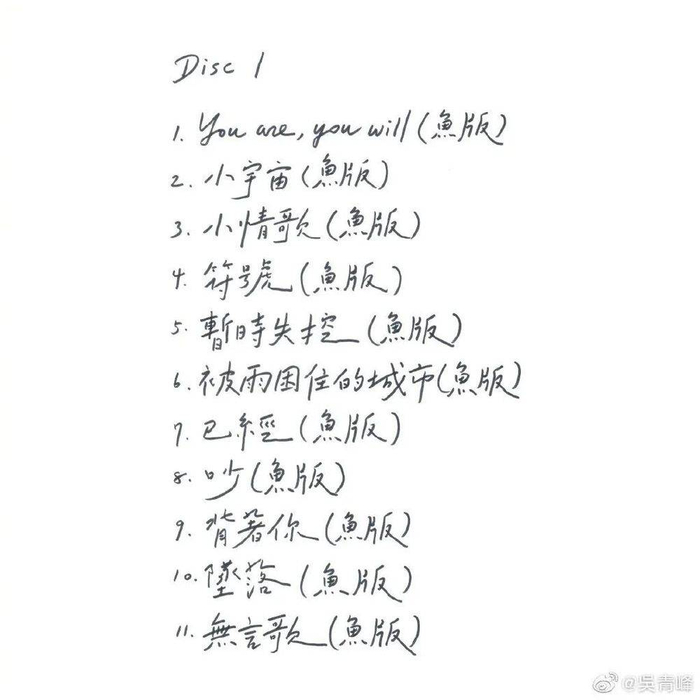 Disc 1
1. You are, you will (魚版)
2. 小宇宙 (魚版)
3. 小情歌 (魚版)
4. 符號 (魚版)
5. 暫時失控 (魚版)
6. 被雨困住的城市 (魚版)
7. 已經 (魚版)
8. 吵 (魚版)
9. 背著你 (魚版)
10. 墜落 (魚版)
11. 無言歌 (魚版)
@吳青峰